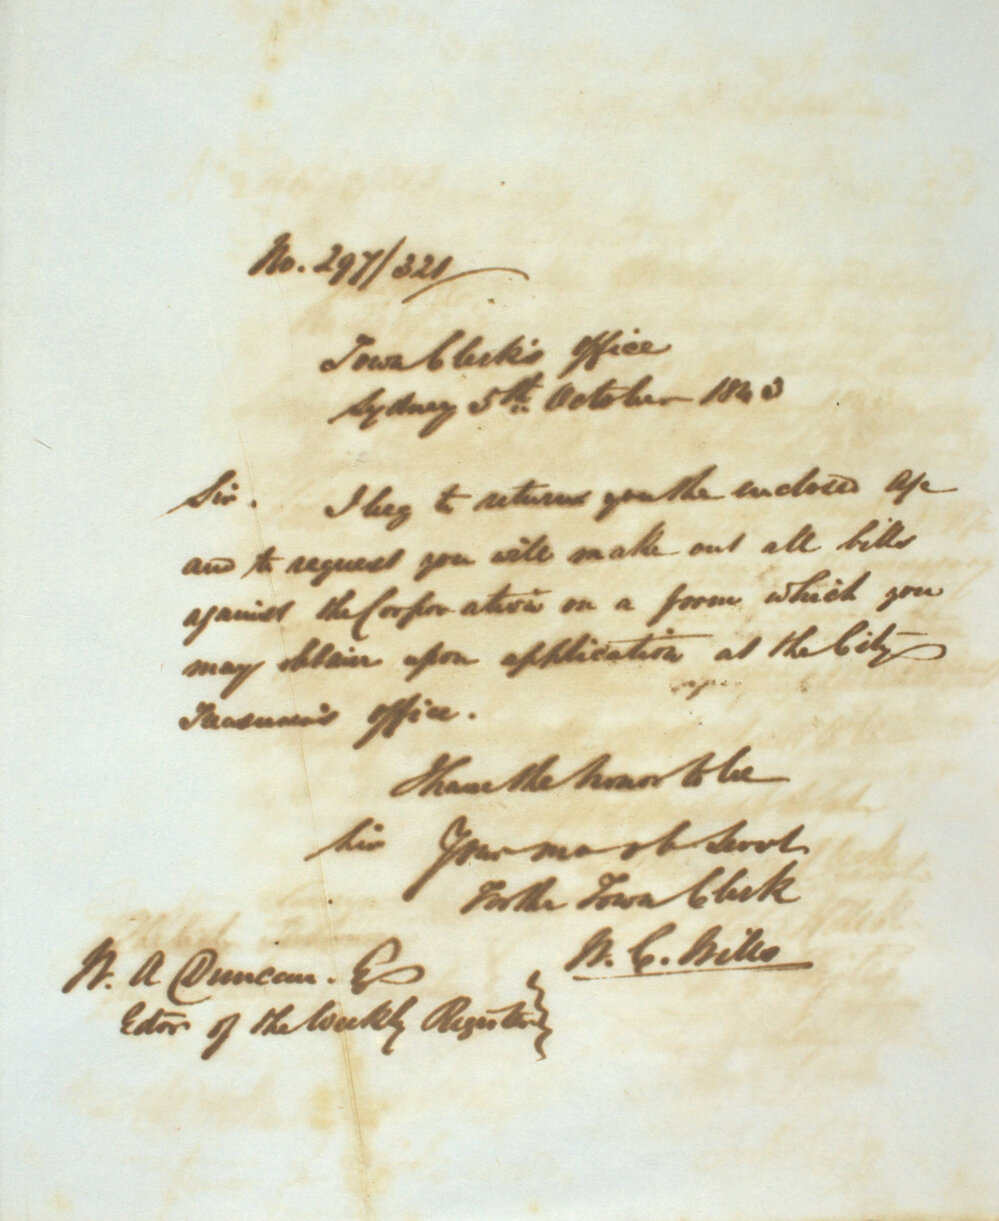 No. 297/321
Town Clerk's Office
Sydney 5th October 1843
Sir. I beg to return you the enclosed a/c
and to request you will make out all bills
against the Corporation on a form which you
may obtain upon application at the City
Treasurer's Office.
I have the honor to be
Sir Your most ob Servt
For the Town Clerk
W. C. Wills
W. A Duncan. Eq
Edor of the Weekly Register